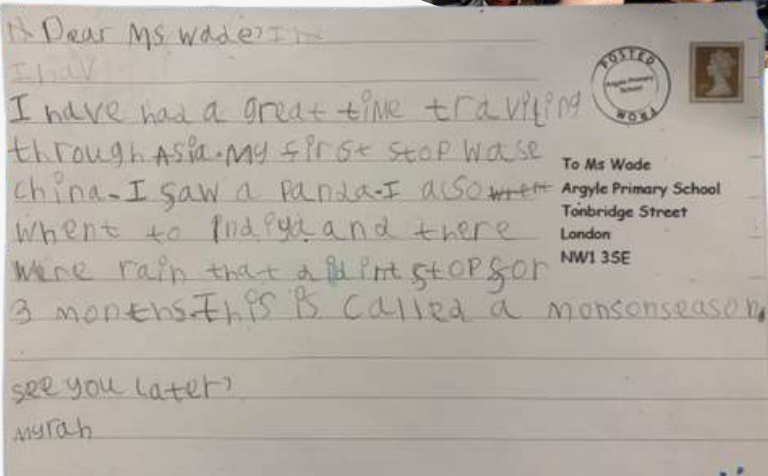 Dear Ms Wade,
I hav
I have had a great time traviling
through Asia. My first stop wase
china. I saw a panda. I also went
Whent to Indiya and there
were rain that didint stop for
3 months. This is called a monsonseason.
see you later,
myrah
POSTED
Argyle Primary School
WORK
To Ms Wade
Argyle Primary School
Tonbridge Street
London
NW1 3SE